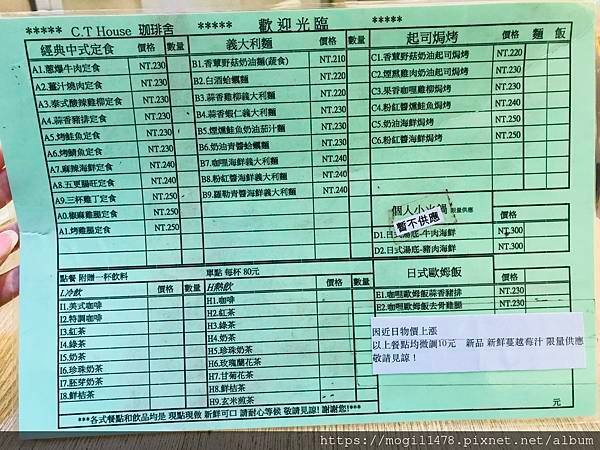 ***** C.T House 珈琲舍 ***** 歡迎光臨 *****
經典中式定食 價格 數量
A1.蔥爆牛肉定食 NT.230
A2.薑汁燒肉定食 NT.230
A3.泰式酸辣雞柳定食 NT.230
A4.蒜香豬排定食 NT.230
A5.烤鮭魚定食 NT.230
A6.烤鯖魚定食 NT.230
A7.麻辣海鮮定食 NT.240
A8.五更腸旺定食 NT.230
A9.三杯雞丁定食 NT.250
A0.椒麻雞腿定食 NT.250
A1.烤雞腿定食 NT.250
義大利麵 價格 數量
B1.香蕈野菇奶油麵(蔬食) NT.210
B2.白酒蛤蠣麵 NT.220
B3.蒜香雞柳義大利麵 NT.230
B4.蒜香蝦仁義大利麵 NT.230
B5.煙燻鮭魚奶油茄汁麵 NT.230
B6.奶油青醬蛤蠣麵 NT.230
B7.咖哩海鮮義大利麵 NT.240
B8.粉紅醬海鮮義大利麵 NT.240
B9.羅勒青醬海鮮義大利麵 NT.240
起司焗烤 價格 麵 飯
C1.香蕈野菇奶油起司焗烤 NT.220
C2.煙燻雞肉奶油起司焗烤 NT.230
C3.果香咖哩雞柳焗烤 NT.230
C4.粉紅醬燻鮭魚焗烤 NT.240
C5.奶油海鮮焗烤 NT.250
C6.粉紅醬海鮮焗烤 NT.250
個人小火鍋 限量供應 價格
暫不供應
D1.日式湯底-牛肉海鮮 NT.300
D2.日式湯底-豬肉海鮮 NT.300
日式歐姆飯 價格
E1.咖哩歐姆飯蒜香豬排 NT.230
E2.咖哩歐姆飯去骨雞腿 NT.230
因近日物價上漲
以上餐點均微調10元 新品 新鮮蔓越莓汁 限量供應
敬請見諒！
元
點餐 附贈一杯飲料 單點 每杯 80元
I.冷飲 價格 數量
I1.美式咖啡
I2.特調咖啡
I3.紅茶
I4.綠茶
I5.奶茶
I6.珍珠奶茶
I7.胚芽奶茶
I8.鮮桔茶
H.熱飲 價格 數量
H1.咖啡
H2.紅茶
H3.綠茶
H4.奶茶
H5.珍珠奶茶
H6.玫瑰蘭花茶
H7.甘菊花茶
H8.鮮桔茶
H9.玄米煎茶
***各式餐點和飲品均是 現點現做 新鮮可口 請耐心等候 敬請見諒! 謝謝您!***
https://mogi11478.pixnet.net/album